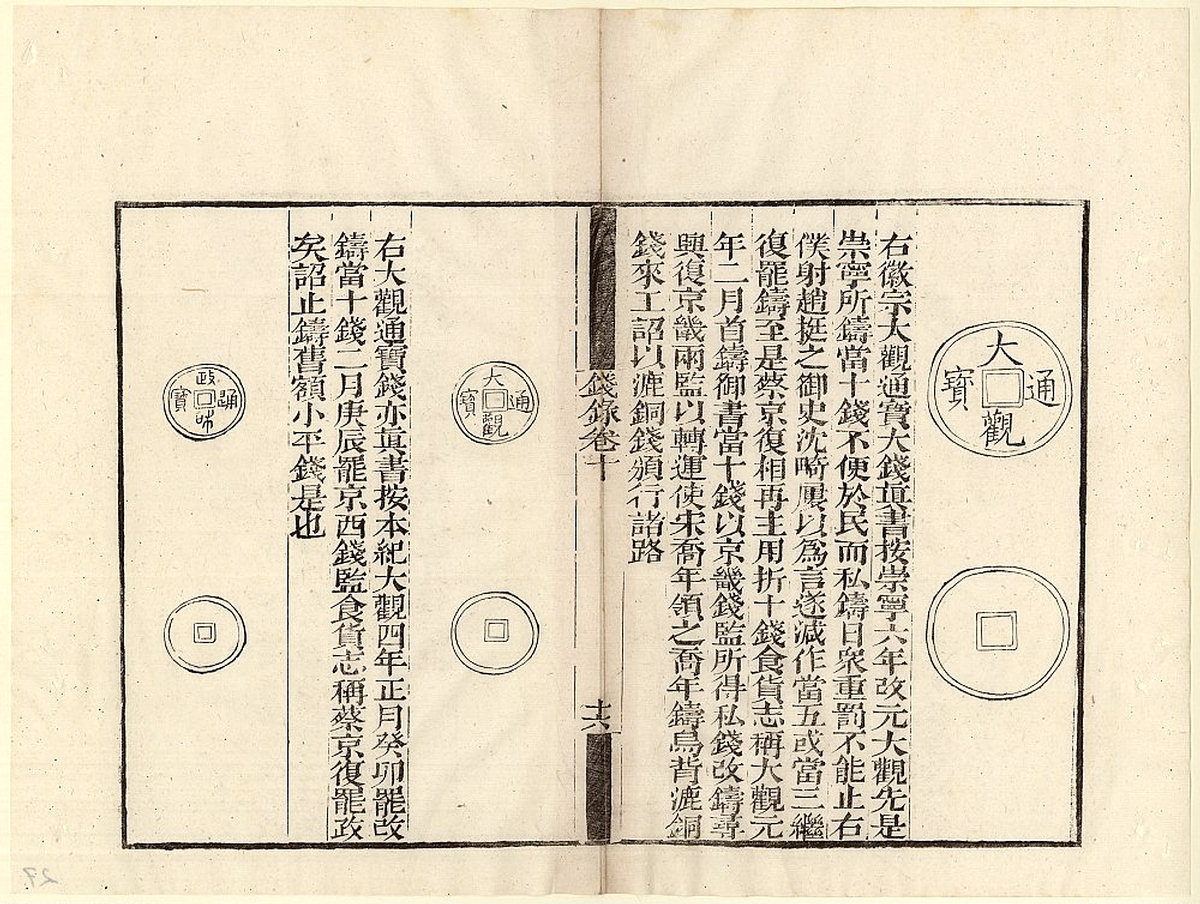 大觀通寶
右徽宗大觀通寶大錢真書按崇寧六年改元大觀先是
崇寧所鑄當十錢不便於民而私鑄日衆重罰不能止右
僕射趙挺之御史沈畸屢以爲言遂減作當五或當三繼
復罷鑄至是蔡京復相再主用折十錢食貨志稱大觀元
年二月首鑄御書當十錢以京畿錢監所得私錢改鑄尋
興復京畿兩監以轉運使宋喬年領之喬年鑄烏背漉銅
錢來工詔以漉銅錢頒行諸路
錢錄卷十
十六
大觀通寶
右大觀通寶錢亦真書按本紀大觀四年正月癸卯罷改
鑄當十錢二月庚辰罷京西錢監食貨志稱蔡京復罷政
矣詔止鑄舊額小平錢是也
政和通寶
27